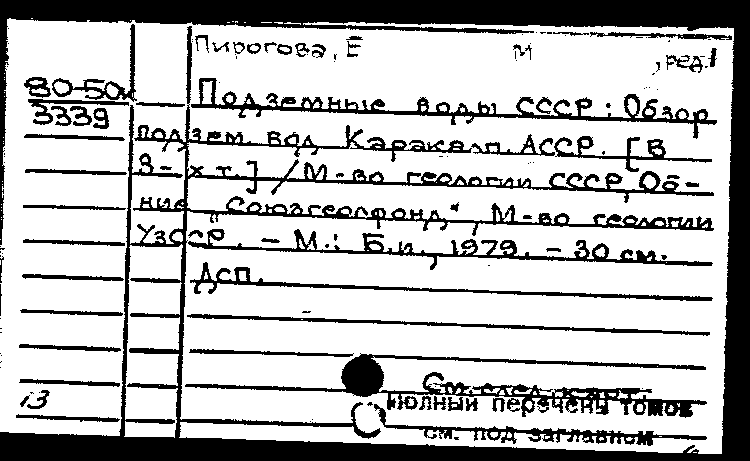 Пирогова, Е М , ред.
80-50к
3339
Подземные воды СССР : Обзор
подзем. вод Каракалп. АССР. [В
3-х т.] / М-во геологии СССР, Об-
ние "Союзгеолфонд", М-во геологии
УзССР. - М.: Б.и., 1979. - 30 см.
Дсп.
См. след. карт.
полный перечень томов
см. под заглавием
13